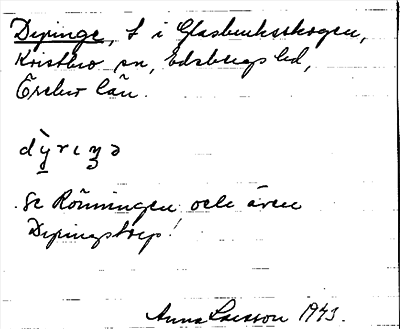 Dyringe, t i Glasbruksskogen,
Kvistbro sn, Edsbergs hd,
Örebro län.
dỳrıŋə
Se Rönningen och även
Dyringstorp!
Anna Larsson 1943.